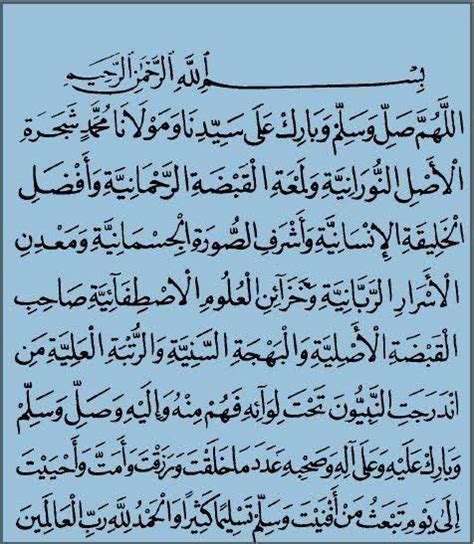 بِسْمِ اللهِ الرَّحْمٰنِ الرَّحِيمِ
اَللّٰهُمَّ صَلِّ وَسَلِّمْ وَبَارِكْ عَلَى سَيِّدِنَا وَمَوْلَانَا مُحَمَّدٍ شَجَرَةِ
الْأَصْلِ النُّورَانِيَّةِ وَلَمْعَةِ الْقَبْضَةِ الرَّحْمَانِيَّةِ وَأَفْضَلِ
الْخَلِيقَةِ الْإِنْسَانِيَّةِ وَأَشْرَفِ الصُّورَةِ الْجِسْمَانِيَّةِ وَمَعْدِنِ
الْأَسْرَارِ الرَّبَّانِيَّةِ وَخَزَائِنِ الْعُلُومِ الْاِصْطِفَائِيَّةِ صَاحِبِ
الْقَبْضَةِ الْأَصْلِيَّةِ وَالْبَهْجَةِ السَّنِيَّةِ وَالرُّتْبَةِ الْعَلِيَّةِ مَنِ
انْدَرَجَتِ النَّبِيُّونَ تَحْتَ لِوَائِهِ فَهُمْ مِنْهُ وَإِلَيْهِ وَصَلِّ وَسَلِّمْ
وَبَارِكْ عَلَيْهِ وَعَلَى آلِهِ وَصَحْبِهِ عَدَدَ مَا خَلَقْتَ وَرَزَقْتَ وَأَمَتَّ وَأَحْيَيْتَ
إِلَى يَوْمِ تَبْعَثُ مَنْ أَفْنَيْتَ وَسَلِّمْ تَسْلِيمًا كَثِيرًا وَالْحَمْدُ لِلّٰهِ رَبِّ الْعَالَمِينَ